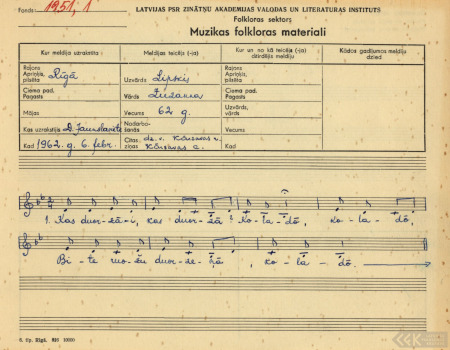 Fonds: 1951, 1
LATVIJAS PSR ZINĀTŅU AKADEMIJAS VALODAS UN LITERATURAS INSTITUTS
Folkloras sektors
Muzikas folkloras materiali
Kur meldija uzrakstīta:
Meldijas teicējs (-ja)
Kur un no kā teicējs (-ja) dzirdējis meldiju
Kādos gadījumos meldija dzied
Rajons Apriņķis, pilsēta Rīgā
Uzvārds
Rajons Apriņķis, pilsēta
Ciema pad. Pagasts
Vārds
Ciema pad. Pagasts
Mājas
Vecums 62 g.
Uzvārds, vārds
Kas uzrakstījis
Nodarbošanās
Vecums
Kad 1962. g. 6. febr.
Citas ziņas dz. v.
Kad
1. Kas duor-zā-i, kas duor-zā? Ko-la-dō, ko-la-dō,
Bi-te ruo-žu duor-ze-ņā, ko-la-dō.